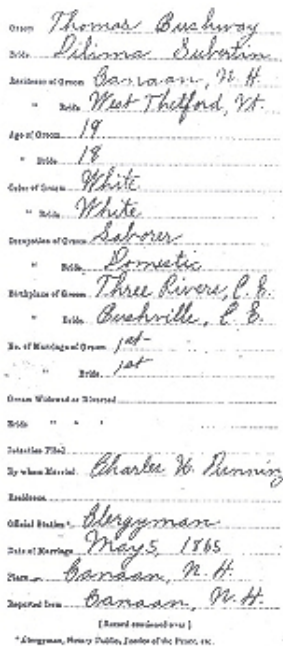 Groom Thomas Bushway
Bride Dilima Subertin
Residence of Groom Canaan, N. H.
" Bride West Thetford, Vt.
Age of Groom 19
" Bride 18
Color of Groom White
" Bride White
Occupation of Groom Laborer
" Bride Domestic
Birthplace of Groom Three Rivers, C. E.
" Bride Bushville, C. E.
No. of Marriage of Groom 1st
" Bride 1st
Groom Widowed or Divorced
Bride " " "
Intention Filed
By whom Married Charles H. Dunning
Residence
Official Station*, Clergyman
Date of Marriage May 5, 1865
Place Canaan, N. H.
Reported from Canaan, N. H.
[Record continued over]
*Clergyman, Notary Public, Justice of the Peace, etc.